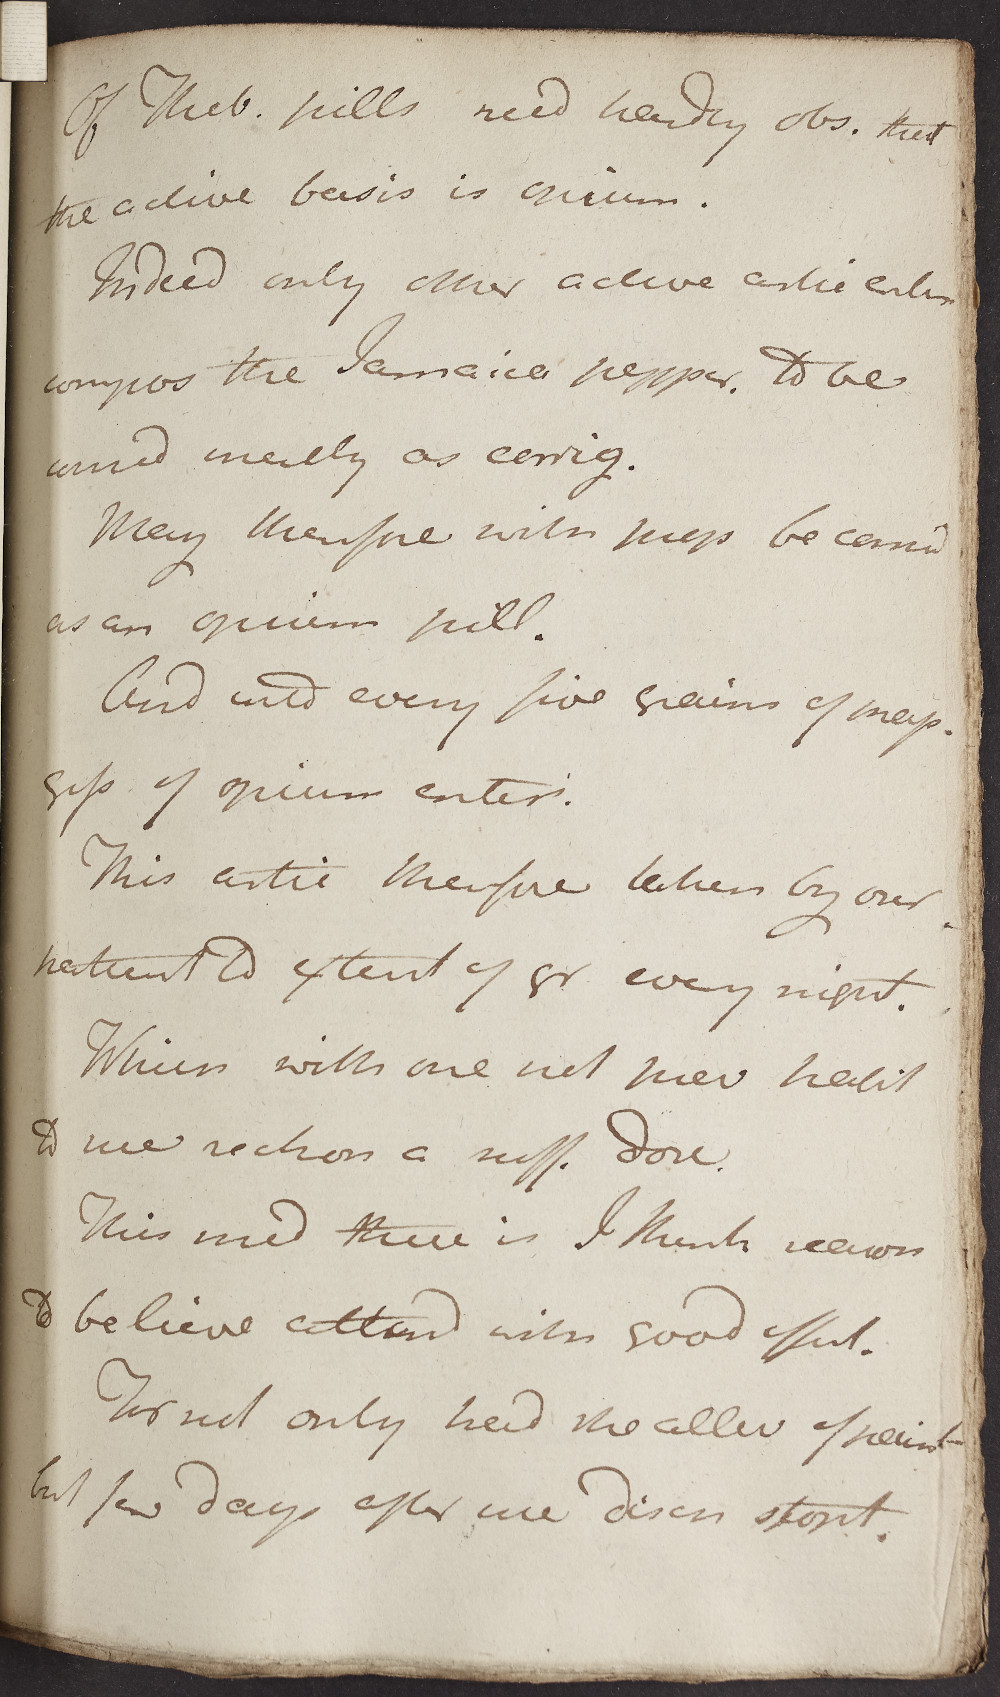 Of Theb. pills need hardly obs. that
the active basis is opium.
Indeed only other active artic enters
compos the Jamaica pepper. to be
consid meerly as corrig.
May therefore with prop be consid
as an opium pill.
And into every five grains of prep.
of opium enters.
This artic therefore taken by our
patient to extent of gr every night.
Which with one not prev habit
to use reckon a suff. dose.
This med there is I think reason
to believe attend with good effect.
For not only had the allev of pain
but few days after use disch stopt.